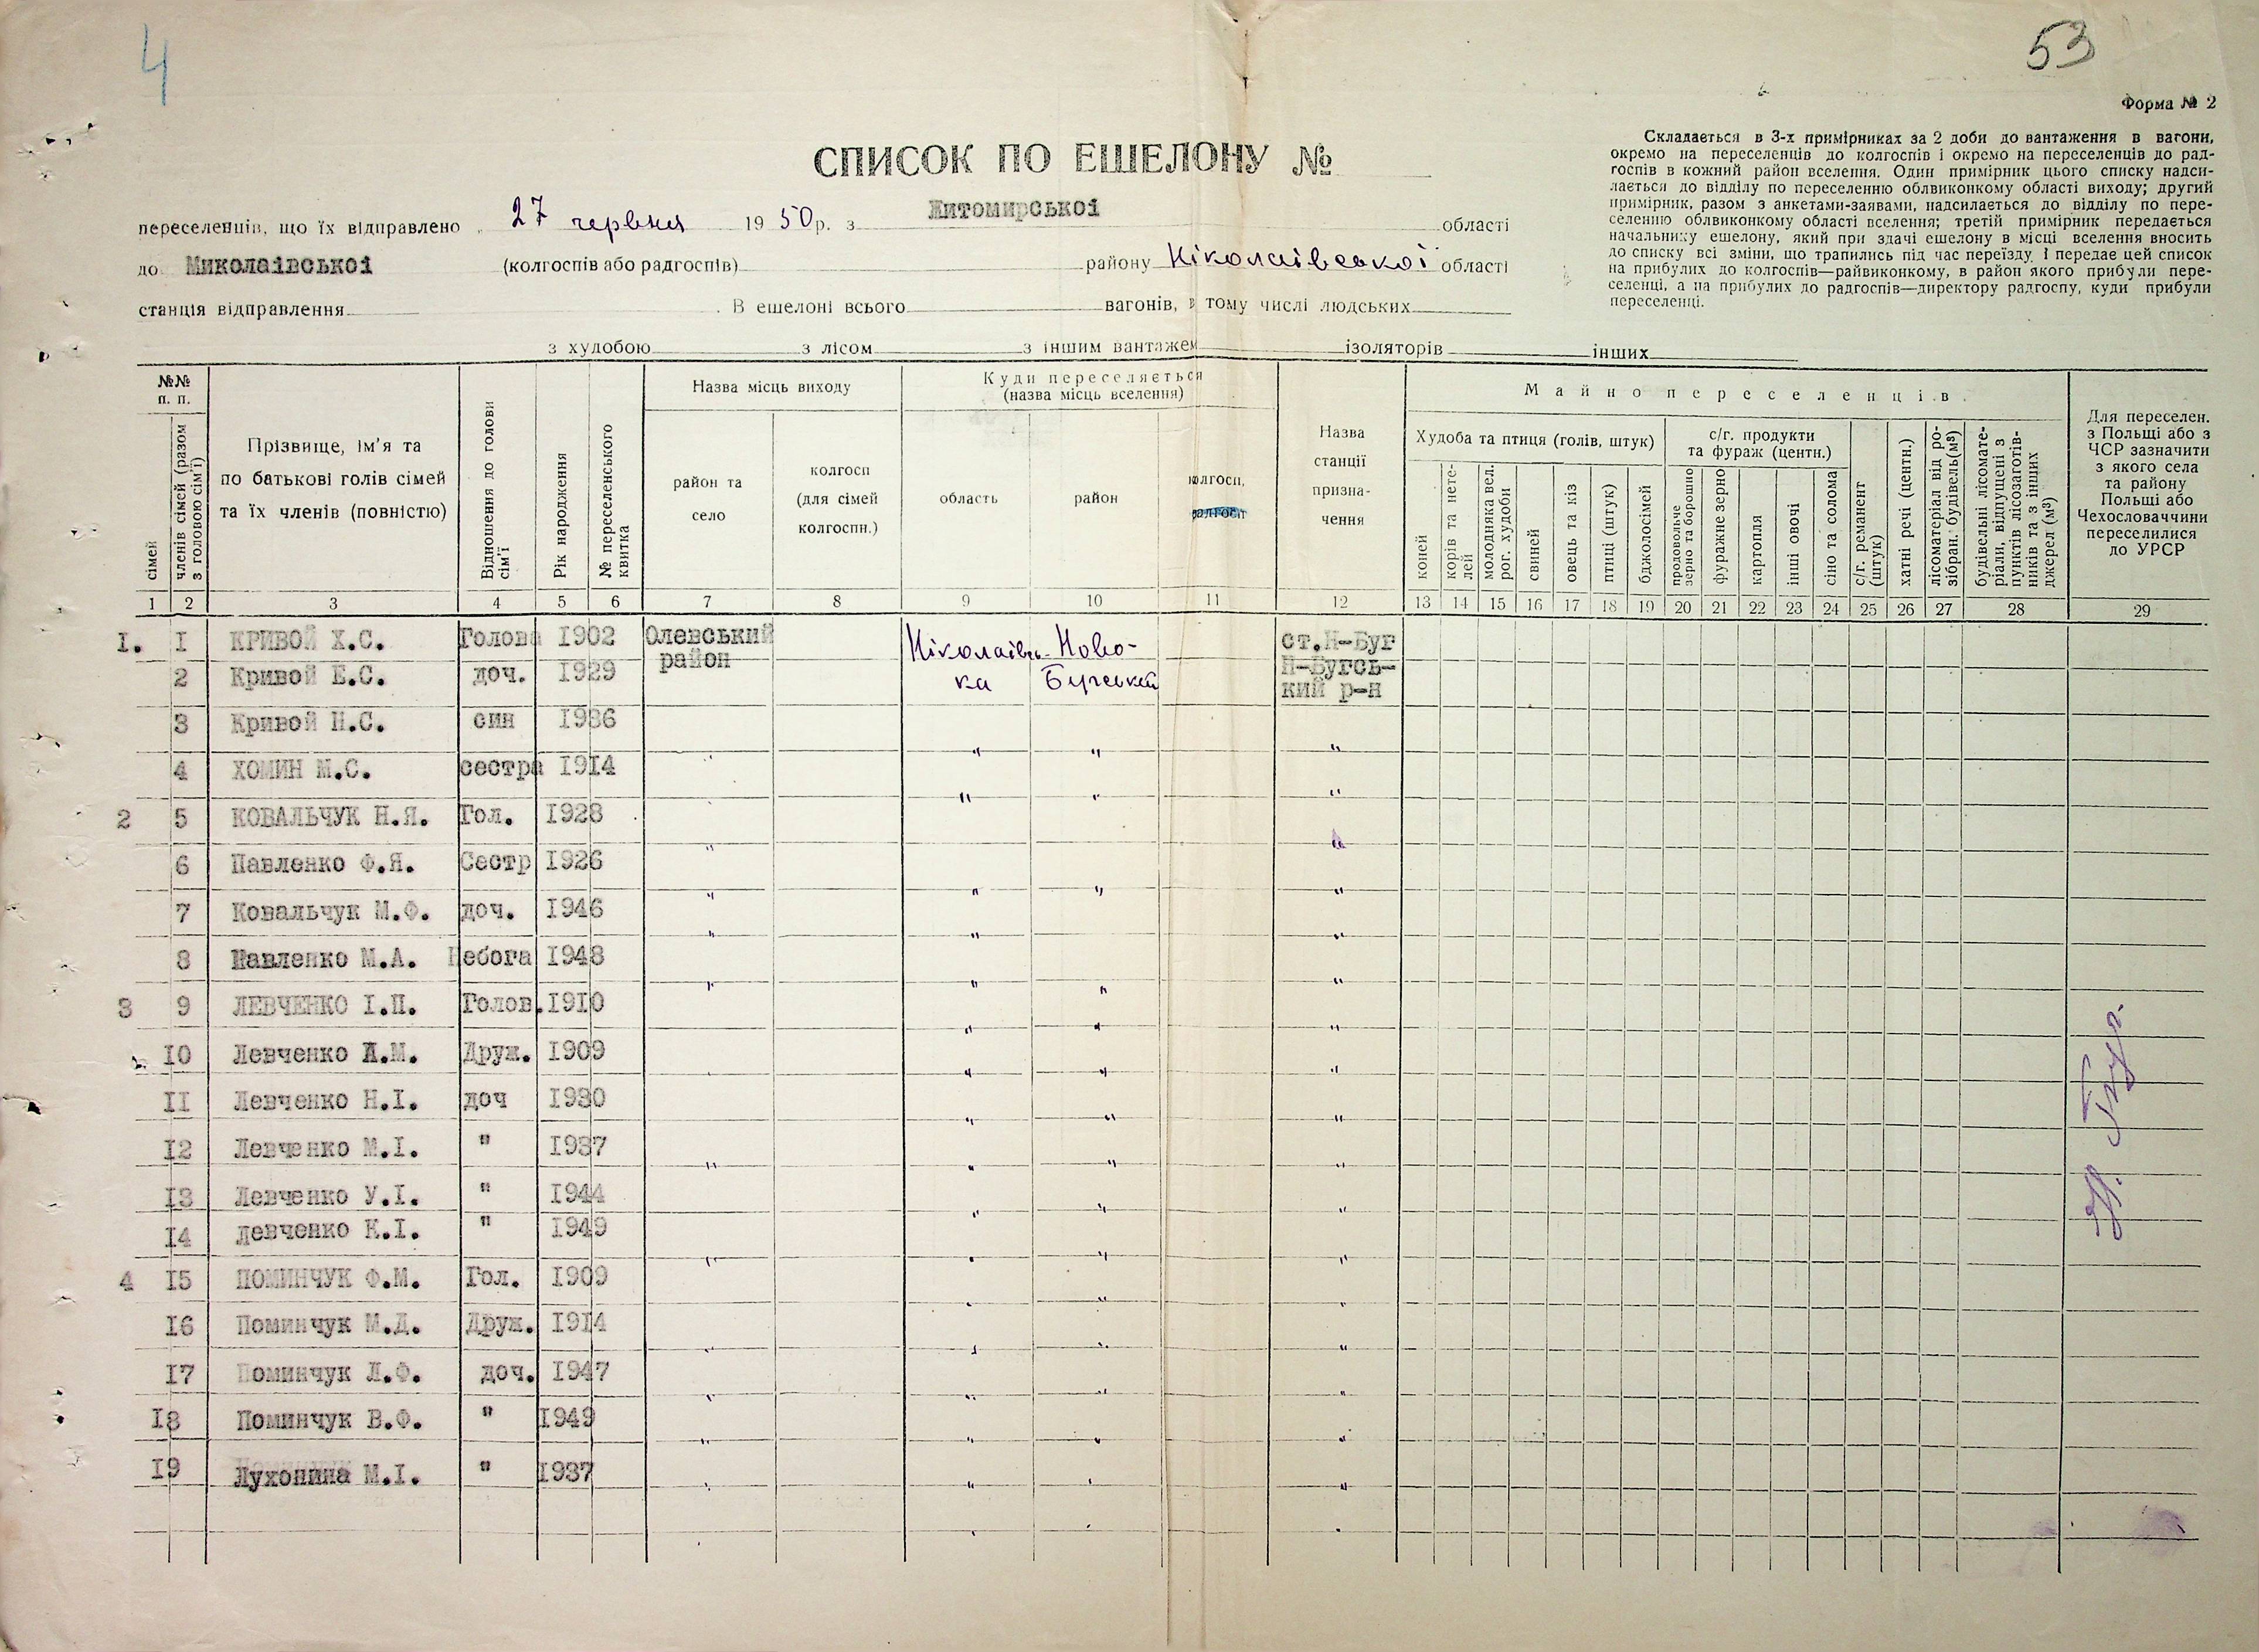 4
53
Форма № 2
СПИСОК ПО ЕШЕЛОНУ №
Складається в 3-х примірниках за 2 доби до вантаження в вагони,
окремо на переселенців до колгоспів і окремо на переселенців до рад-
госпів в кожний район вселення. Один примірник цього списку надси-
лається до відділу по переселенню облвиконкому області виходу; другий
примірник, разом з анкетами-заявами, надсилається до відділу по пере-
селенню облвиконкому області вселення; третій примірник передається
начальнику ешелону, який при здачі ешелону в місці вселення вносить
до списку всі зміни, що трапились під час переїзду. І передає цей список
на прибулих до колгоспів—райвиконкому, в район якого прибули пере-
селенці, а на прибулих до радгоспів—директору радгоспу, куди прибули
переселенці.
переселенців, що їх відправлено „ 27 червня 1950р. з Житомирської області
до Миколаївської (колгоспів або радгоспів) району Ніколаівської області
станція відправлення . В ешелоні всього вагонів, в тому числі людських
з худобою з лісом з іншим вантажем ізоляторів інших
№№ п. п.
сімей
членів сімей (разом з головою сім'ї)
Прізвище, ім'я та
по батькові голів сімей
та їх членів (повністю)
Відношення до голови сім'ї
Рік народження
№ переселенського квитка
Назва місць виходу
район та
село
колгосп
(для сімей
колгоспн.)
Куди переселяється
(назва місць вселення)
область
район
колгосп,
радгосп
Назва
станції
призна-
чення
Майно переселенців
Худоба та птиця (голів, штук)
коней
корів та нете-
лей
молодняка вел.
рог. худоби
свиней
овець та кіз
птиці (штук)
бджолосімей
с/г. продукти
та фураж (центн.)
продовольче
зерно та борошно
фуражне зерно
картопля
інші овочі
сіно та солома
с/г. реманент
(штук)
хатні речі (центн.)
лісоматеріал від ро-
зібран. будівель(м³)
будівельні лісомате-
ріали, відпущені з
пунктів лісозаготів-
ників та з інших
джерел (м³)
Для переселен.
з Польщі або з
ЧСР зазначити
з якого села
та району
Польщі або
Чехословаччини
переселилися
до УРСР
1 2 3 4 5 6 7 8 9 10 11 12 13 14 15 16 17 18 19 20 21 22 23 24 25 26 27 28 29
I. I КРИВОЙ Х.С. Голова I902 Олевський район Ніколаівсь-ка Ново-Бугський ст.Н-Буг Н-Бугсь-кий р-н
2 Кривой Е.С. доч. I929
3 Кривой Н.С. син I936 " " "
4 ХОМИН М.С. сестра I9I4 " " "
2 5 КОВАЛЬЧУК Н.Я. Гол. I928 " "
6 Павленко Ф.Я. Сестр I926 " " " "
7 Ковальчук М.Ф. доч. I946 " " "
8 Павленко М.А. Небога I948 " " " "
3 9 ЛЕВЧЕНКО І.П. Голов. I9I0 " " "
I0 Левченко А.М. Друж. I909 " " "
II Левченко Н.І. доч I930 " " "
I2 Левченко М.І. " I937 " " " "
I3 Левченко У.І. " I944 " " "
I4 Левченко К.І. " I949 " " " "
4 I5 ПОМИНЧУК Ф.М. Гол. I909 " " "
I6 Поминчук М.Д. Друж. I9I4 " " " "
I7 Поминчук Л.Ф. доч. I947 " " " "
I8 Поминчук В.Ф. " I949 " " " "
I9 Лухонина М.І. " I937 " " " "
Н. Буг.